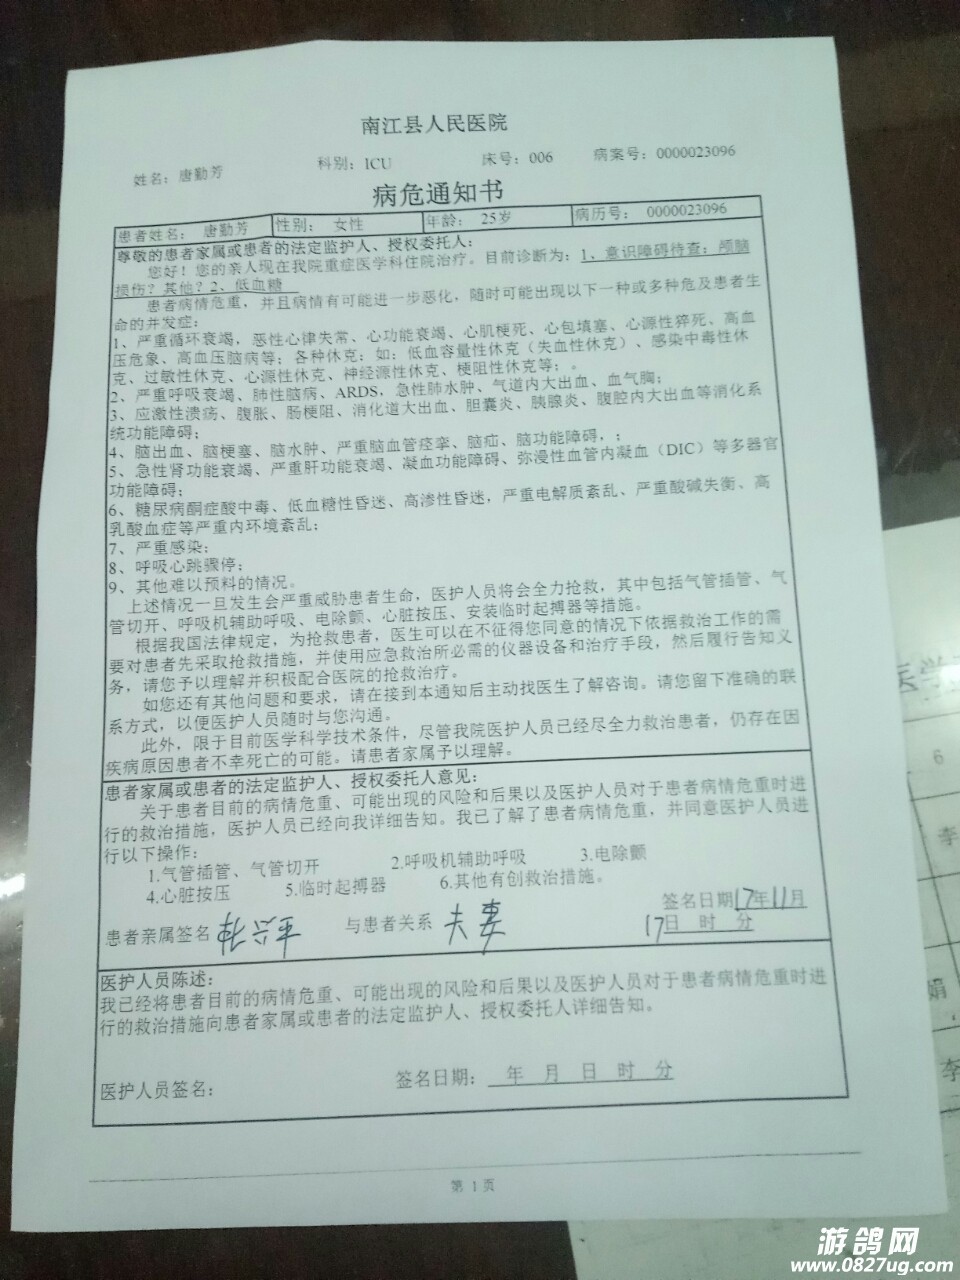 南江县人民医院
姓名：唐勤芳 科别：ICU 床号：006 病案号：0000023096
病危通知书
患者姓名： 唐勤芳 性别： 女性 年龄： 25岁 病历号： 0000023096
尊敬的患者家属或患者的法定监护人、授权委托人：
您好！您的亲人现在我院重症医学科住院治疗。目前诊断为：1、意识障碍待查：颅脑
损伤？其他？2、低血糖
患者病情危重，并且病情有可能进一步恶化，随时可能出现以下一种或多种危及患者生
命的并发症：
1、严重循环衰竭，恶性心律失常、心功能衰竭、心肌梗死、心包填塞、心源性猝死、高血
压危象、高血压脑病等；各种休克：如：低血容量性休克（失血性休克）、感染中毒性休
克、过敏性休克、心源性休克、神经源性休克、梗阻性休克等；。
2、严重呼吸衰竭、肺性脑病、ARDS，急性肺水肿、气道内大出血、血气胸；
3、应激性溃疡、腹胀、肠梗阻、消化道大出血、胆囊炎、胰腺炎、腹腔内大出血等消化系
统功能障碍；
4、脑出血、脑梗塞、脑水肿、严重脑血管痉挛、脑疝、脑功能障碍，；
5、急性肾功能衰竭、严重肝功能衰竭、凝血功能障碍、弥漫性血管内凝血（DIC）等多器官
功能障碍；
6、糖尿病酮症酸中毒、低血糖性昏迷、高渗性昏迷，严重电解质紊乱、严重酸碱失衡、高
乳酸血症等严重内环境紊乱；
7、严重感染；
8、呼吸心跳骤停；
9、其他难以预料的情况。
上述情况一旦发生会严重威胁患者生命，医护人员将会全力抢救，其中包括气管插管、气
管切开、呼吸机辅助呼吸、电除颤、心脏按压、安装临时起搏器等措施。
根据我国法律规定，为抢救患者，医生可以在不征得您同意的情况下依据救治工作的需
要对患者先采取抢救措施，并使用应急救治所必需的仪器设备和治疗手段，然后履行告知义
务，请您予以理解并积极配合医院的抢救治疗。
如您还有其他问题和要求，请在接到本通知后主动找医生了解咨询。请您留下准确的联
系方式，以便医护人员随时与您沟通。
此外，限于目前医学科学技术条件，尽管我院医护人员已经尽全力救治患者，仍存在因
疾病原因患者不幸死亡的可能。请患者家属予以理解。
患者家属或患者的法定监护人、授权委托人意见：
关于患者目前的病情危重、可能出现的风险和后果以及医护人员对于患者病情危重时进
行的救治措施，医护人员已经向我详细告知。我已了解了患者病情危重，并同意医护人员进
行以下操作：
1.气管插管、气管切开 2.呼吸机辅助呼吸 3.电除颤
4.心脏按压 5.临时起搏器 6.其他有创救治措施。
患者亲属签名 与患者关系 夫妻 签名日期17年11月
17日 时 分
医护人员陈述：
我已经将患者目前的病情危重、可能出现的风险和后果以及医护人员对于患者病情危重时进
行的救治措施向患者家属或患者的法定监护人、授权委托人详细告知。
医护人员签名： 签名日期： 年 月 日 时 分
第 1 页
医学
6
李
娟
李
游鸽网
www.0827ug.com